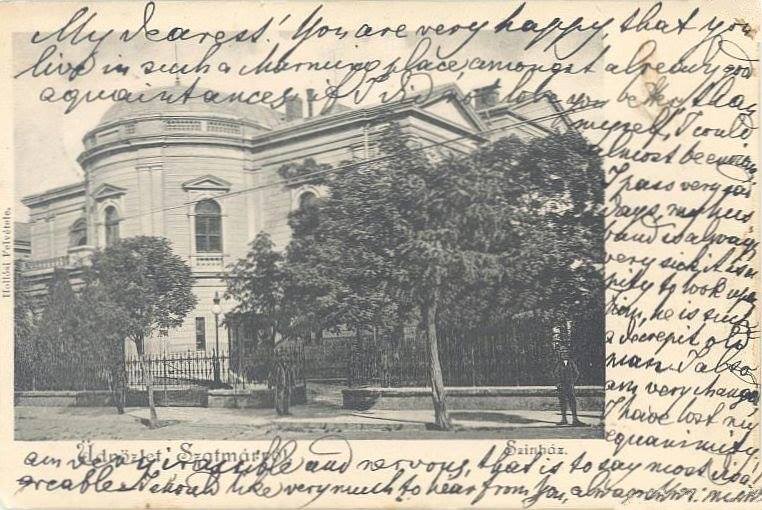 My dearest! You are very happy, that you
live in such a charming place, amongst already good
aquaintances, if I did not love you better than
myself, I could
almost be envious
I pass very sad
days, my hus
band is always
very sick, it is a
pity to look upon
him, he is such
a decrepit old
man. I also
am very changed,
I have lost my
equanimity,
Üdvözlet Szatmárról. Szinház.
Hollósi Felvétele.
am very irascible and nervous, that is to say most disa
greable. I should like very much to hear from You,